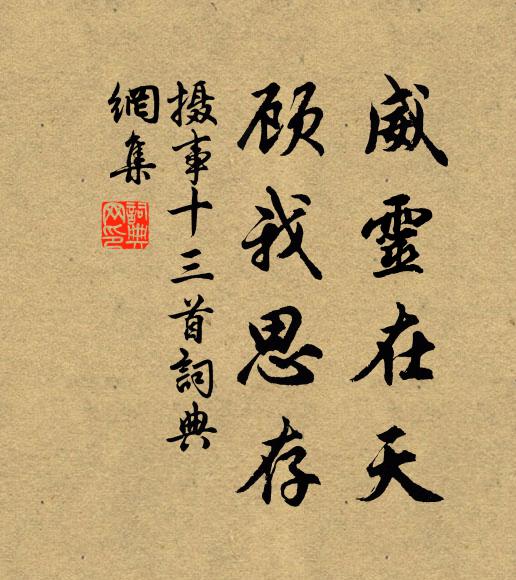 威靈在天
顾我思存
摄事十三首詞典
網集
詞典
网印